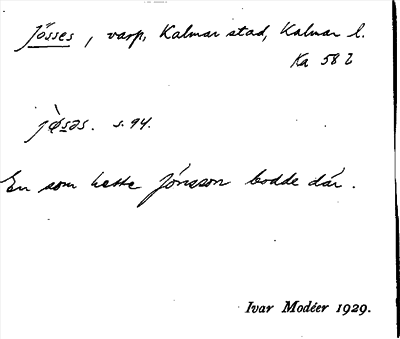 Jösses, varp, Kalmar stad, Kalmar l.
Ka 58 l
jø̀səs. s. 94.
En som hette Jönsson bodde där.
Ivar Modéer 1929.